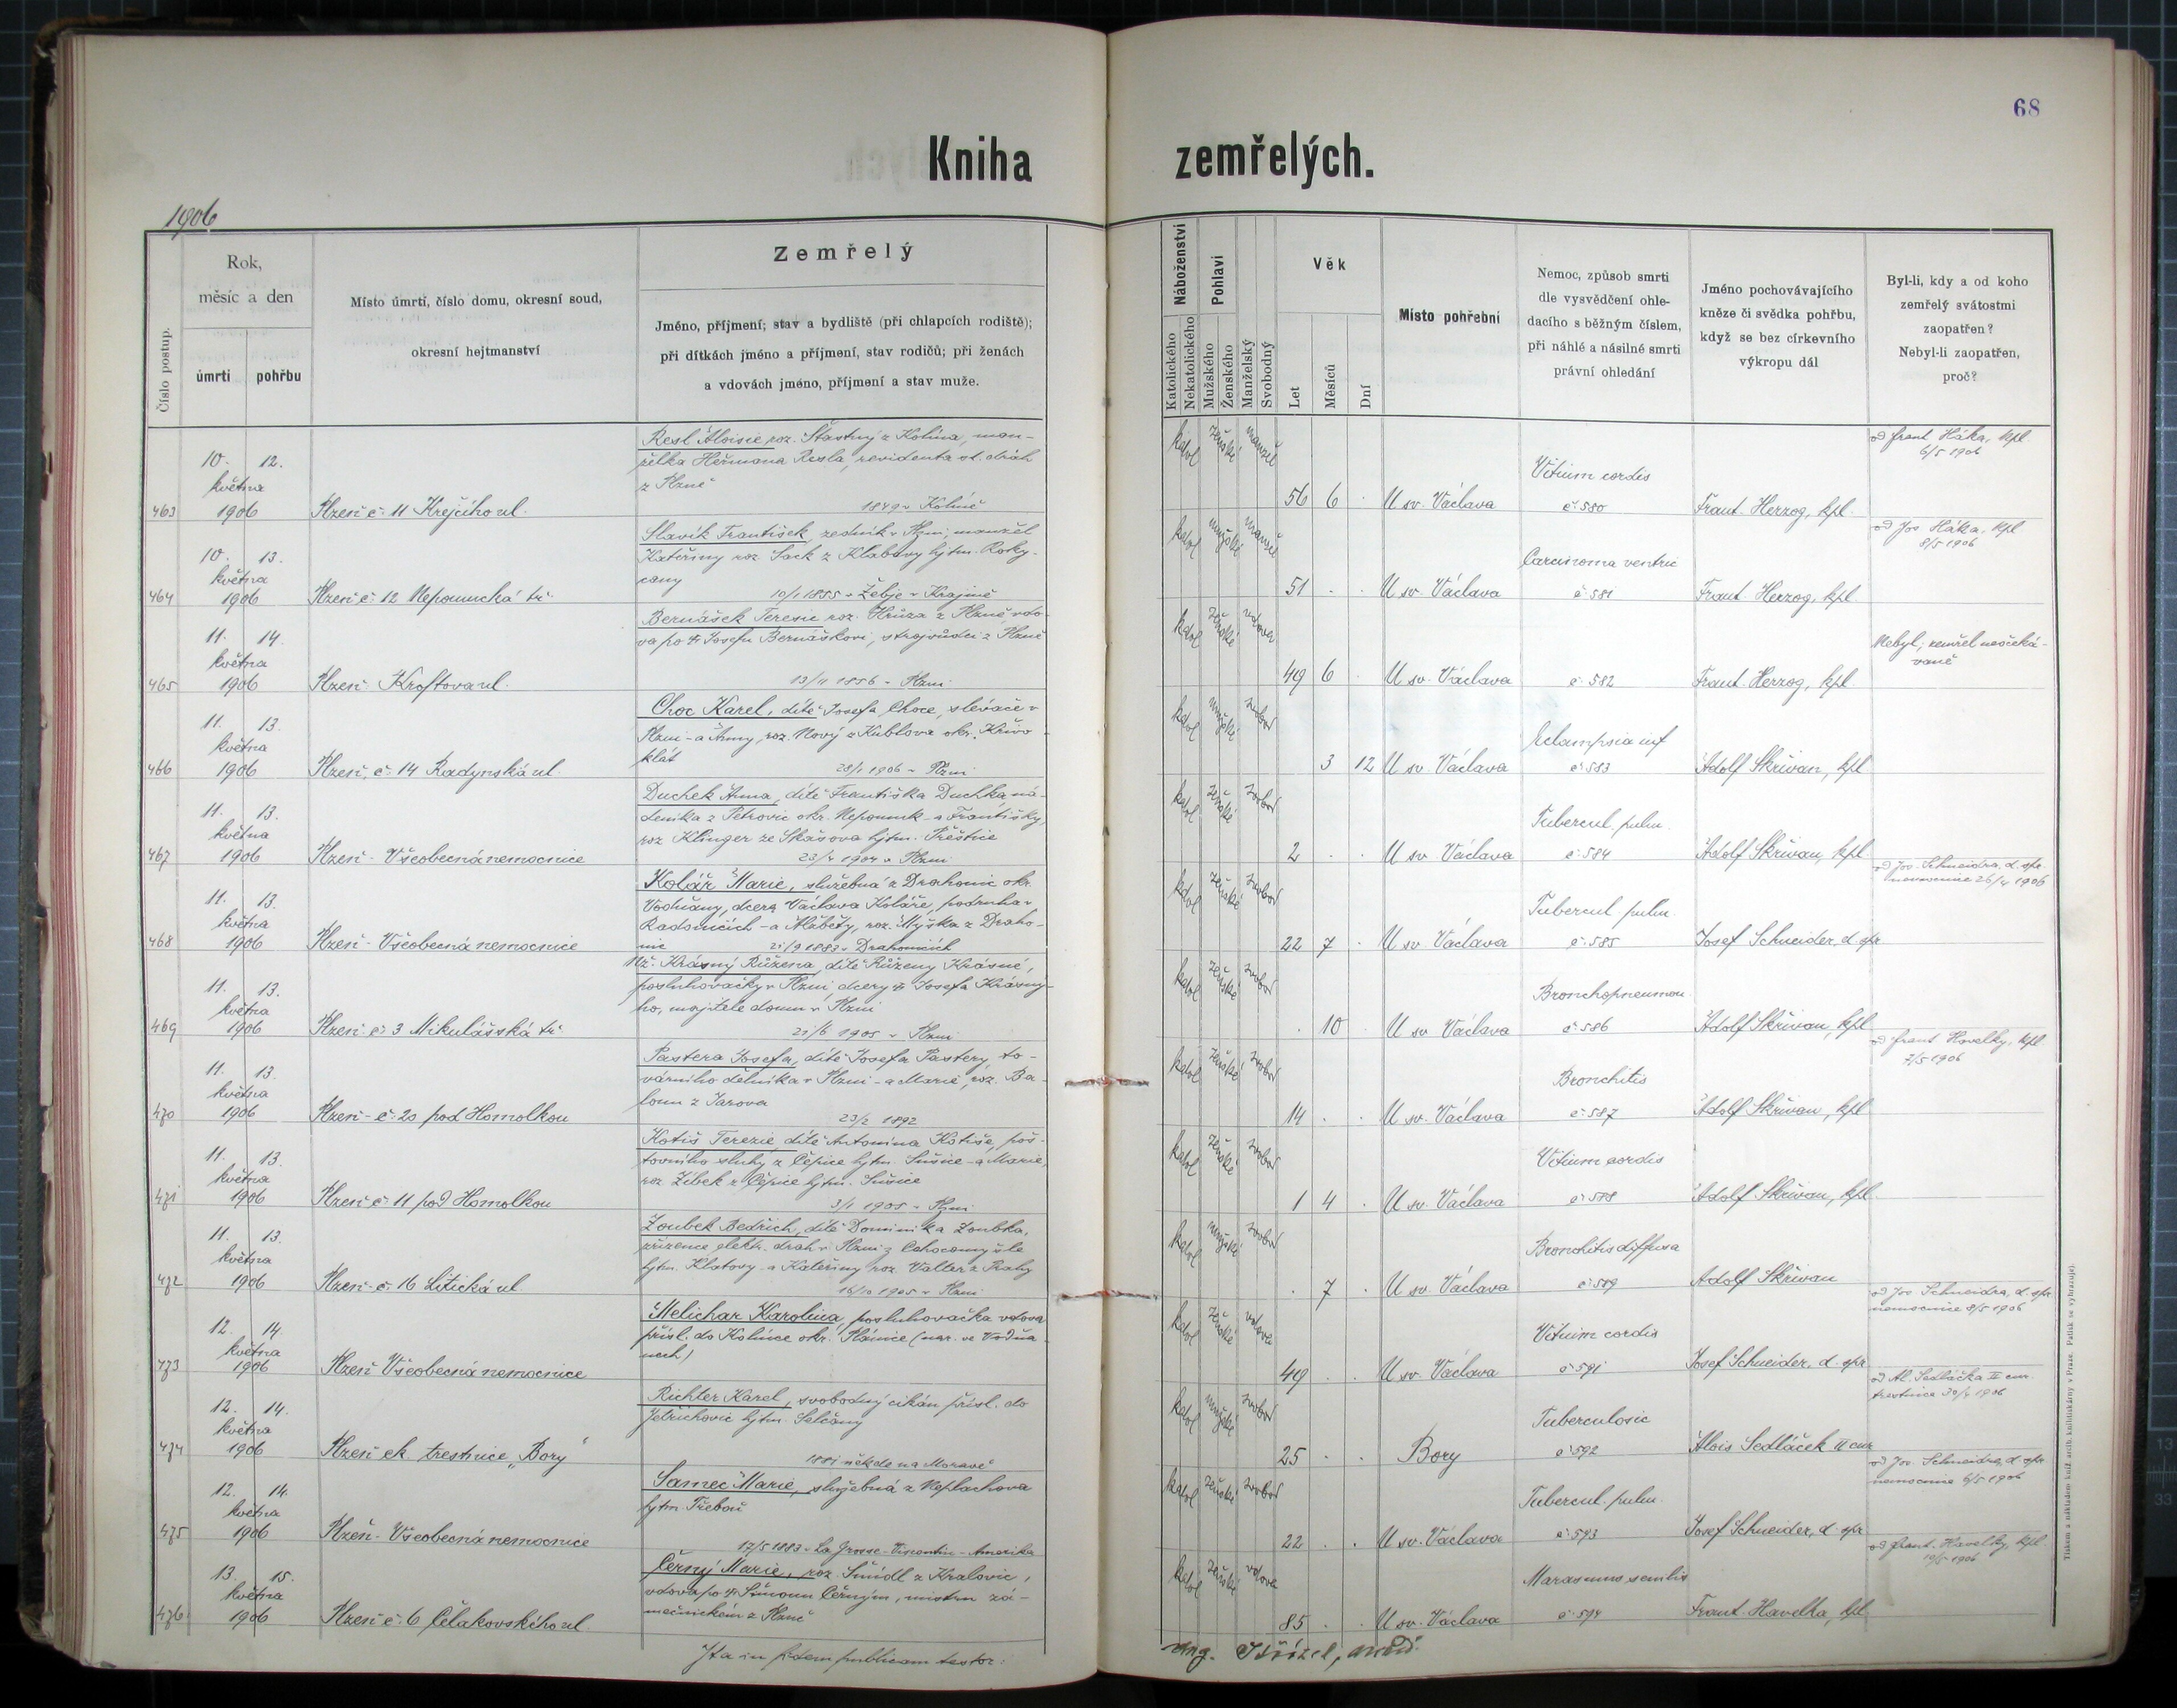 68
Kniha zemřelých.
1906
Číslo postup.
Rok,
měsíc a den
úmrtí
pohřbu
Místo úmrtí, číslo domu, okresní soud,
okresní hejtmanství
Zemřelý
Jméno, příjmení; stav a bydliště (při chlapcích rodiště);
při dítkách jméno a příjmení, stav rodičů; při ženách
a vdovách jméno, příjmení a stav muže.
Náboženství
Katolického
Nekatolického
Pohlaví
Mužského
Ženského
Manželský
Svobodný
Věk
Let
Měsíců
Dní
Místo pohřební
Nemoc, způsob smrti
dle vysvědčení ohle-
dacího s běžným číslem,
při náhlé a násilné smrti
právní ohledání
Jméno pochovávajícího
kněze či svědka pohřbu,
když se bez církevního
výkropu dál
Byl-li, kdy a od koho
zemřelý svátostmi
zaopatřen?
Nebyl-li zaopatřen,
proč?
463
10. 12.
května
1906
Plzeň č. 11 Krejčího ul.
Resl Aloisie, roz. Šťastný z Kolína, man-
želka Heřmana Resla, revidenta st. drah
z Plzně
1849 v Kolíně
katol ženské manžel
56 6
U sv. Václava
Vitium cordis
č. 580
Frant. Herzog, kpl.
od Frant Háka, kpl.
6/5 1906
464
10. 13.
května
1906
Plzeň č. 12 Nepomucká tř.
Slavík František, zedník v Plzni, manžel
Kateřiny roz. Sack z Klabavy hjtm. Roky-
cany
10/1 1855 v Žebje v Krajině
katol mužské manžel
51
U sv. Václava
Carcinoma ventric
č. 581
Frant Herzog, kpl
od Jos Háka, kpl
8/5 1906
465
11. 14.
května
1906
Plzeň Kroftova ul.
Bernášek Teresie roz. Hrůza z Plzně, vdo-
va po † Josefu Bernáškovi, strojvůdci z Plzně
13/11 1856 v Plzni
katol ženské vdova
49 6
U sv. Václava
č. 582
Frant. Herzog, kpl.
Nebyl, zemřel neočeká-
vaně
466
11. 13.
května
1906
Plzeň, č. 14 Radynská ul.
Choc Karel, dítě Josefa Choce, slévače v
Plzni - a Anny, roz. Nový z Kublova okr. Křivo-
klát
28/1 1906 v Plzni
katol mužské svobod
3 12
U sv. Václava
Eclampsia inf
č. 583
Adolf Skřivan, kpl
467
11. 13.
května
1906
Plzeň - Všeobecná nemocnice
Duchek Anna, dítě Františka Duchka ná-
deníka z Petrovic okr. Nepomuk - a Františky,
roz Klinger ze Skašova hjtm. Přeštice
23/4 1904 v Plzni
katol ženské svobod
2
U sv Václava
Tubercul. pulm.
č. 584
Adolf Skřivan, kpl.
468
11. 13.
května
1906
Plzeň - Všeobecná nemocnice
Kolář Marie, služebná z Drahonic okr.
Vodňany, dcera Václava Koláře, podruha v
Radomicích - a Alžběty, roz. Myška z Draho-
nic 21/9 1883 v Drahonicích
katol ženské svobod
22 7
U sv Václava
Tubercul. pulm.
č. 585
Josef Schneider, d. spr
od Jos. Schneidra, d. spr.
nemocnice 26/4 1906
469
11. 13.
května
1906
Plzeň č. 3 Mikulášská tř.
Nž. Krásný Růžena, dítě Růženy Krásné,
posluhovačky v Plzni, dcery † Josefa Krásný-
ho, majitele domu v Plzni
21/6 1905 v Plzni
katol ženské svobod
10
U sv Václava
Bronchopneumon.
č. 586
Adolf Skřivan, kpl
470
11. 13.
května
1906
Plzeň - č. 20 pod Homolkou
Pastera Josefa, dítě Josefa Pastery, to-
várního dělníka v Plzni - a Marie, roz. Ba-
loun z Jarova
23/2 1892
katol ženské svobod
14
U sv. Václava
Bronchitis
č. 587
Adolf Skřivan, kpl
od Frant Havelky, kpl
2/5 1906
471
11. 13.
května
1906
Plzeň č. 11 pod Homolkou
Kotiš Terezie dítě Antonína Kotiše, poš-
tovního sluhy z Čepice hjtm. Sušice - a Marie,
roz Zíbek z Čepice hjtm. Sušice
3/1 1905 v Plzni
katol ženské svobod
1 4
U sv. Václava
Vitium cordis
č. 588
Adolf Skřivan, kpl.
472
11. 13.
května
1906
Plzeň - č. 16 Litická ul
Zoubek Bedřich, dítě Dominika Zoubka,
zřízence elektr. drah v Plzni z Chocomyšle
hjtm. Klatovy - a Kateřiny roz. Valter z Prahy
16/10 1905 v Plzni
katol mužské svobod
7
U sv. Václava
Bronchitis diffusa
č. 589
Adolf Skřivan
473
12. 14.
května
1906
Plzeň Všeobecná nemocnice
Melichar Karolina, posluhovačka vdova
přísl. do Kolince okr. Plánice (nar. ve Vodňa-
nech)
katol ženské vdova
49
U sv. Václava
Vitium cordis
č. 591
Josef Schneider, d. spr
od Jos Schneidra, d. spr.
nemocnice 8/5 1906
474
12. 14.
května
1906
Plzeň ck. trestnice „Bory“
Richter Karel, svobodný cikán přísl. do
Jetřichovic hjtm. Selčany
1881 někde na Moravě
katol mužské svobod
25
Bory
Tuberculosis
č. 592
Alois Sedláček II cur
od Al. Sedláčka II cur.
trestnice 30/4 1906
475
12. 14.
května
1906
Plzeň - Všeobecná nemocnice
Samec Marie, služebná z Neplachova
hjtm. Třeboň
17/5 1883 v La Grosse - Viscontin - Amerika
katol ženské svobod
22
U sv. Václava
Tubercul. pulm.
č. 593
Josef Schneider, d. spr
od Jos. Schneidra, d. spr
nemocnice 6/5 1906
476
13. 15.
května
1906
Plzeň č. 6 Čelakovského ul.
Černý Marie, roz. Šmídl z Kralovic,
vdova po † Šimonu Černým, mistru zá-
mečnickém z Plzně
katol ženské vdova
85
U sv. Václava
Marasmus senilis
č. 594
Frant. Havelka, kpl
od Frant. Havelky, kpl.
10/5 1906
Ita in fidem publicam testor:
Tiskem a nákladem kníž. arcib. knihtiskárny v Praze. Patisk se vyhrazuje.